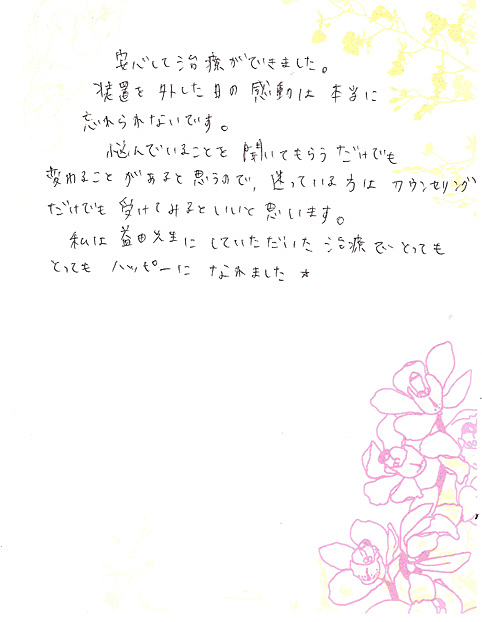 安心して治療ができました。
装置を外した日の感動は本当に
忘れられないです。
悩んでいることを聞いてもらうだけでも
変わることがあると思うので、迷っている方はカウンセリング
だけでも受けてみるといいと思います。
私は益田先生にしていただいた治療でとっても
とってもハッピーになれました☆